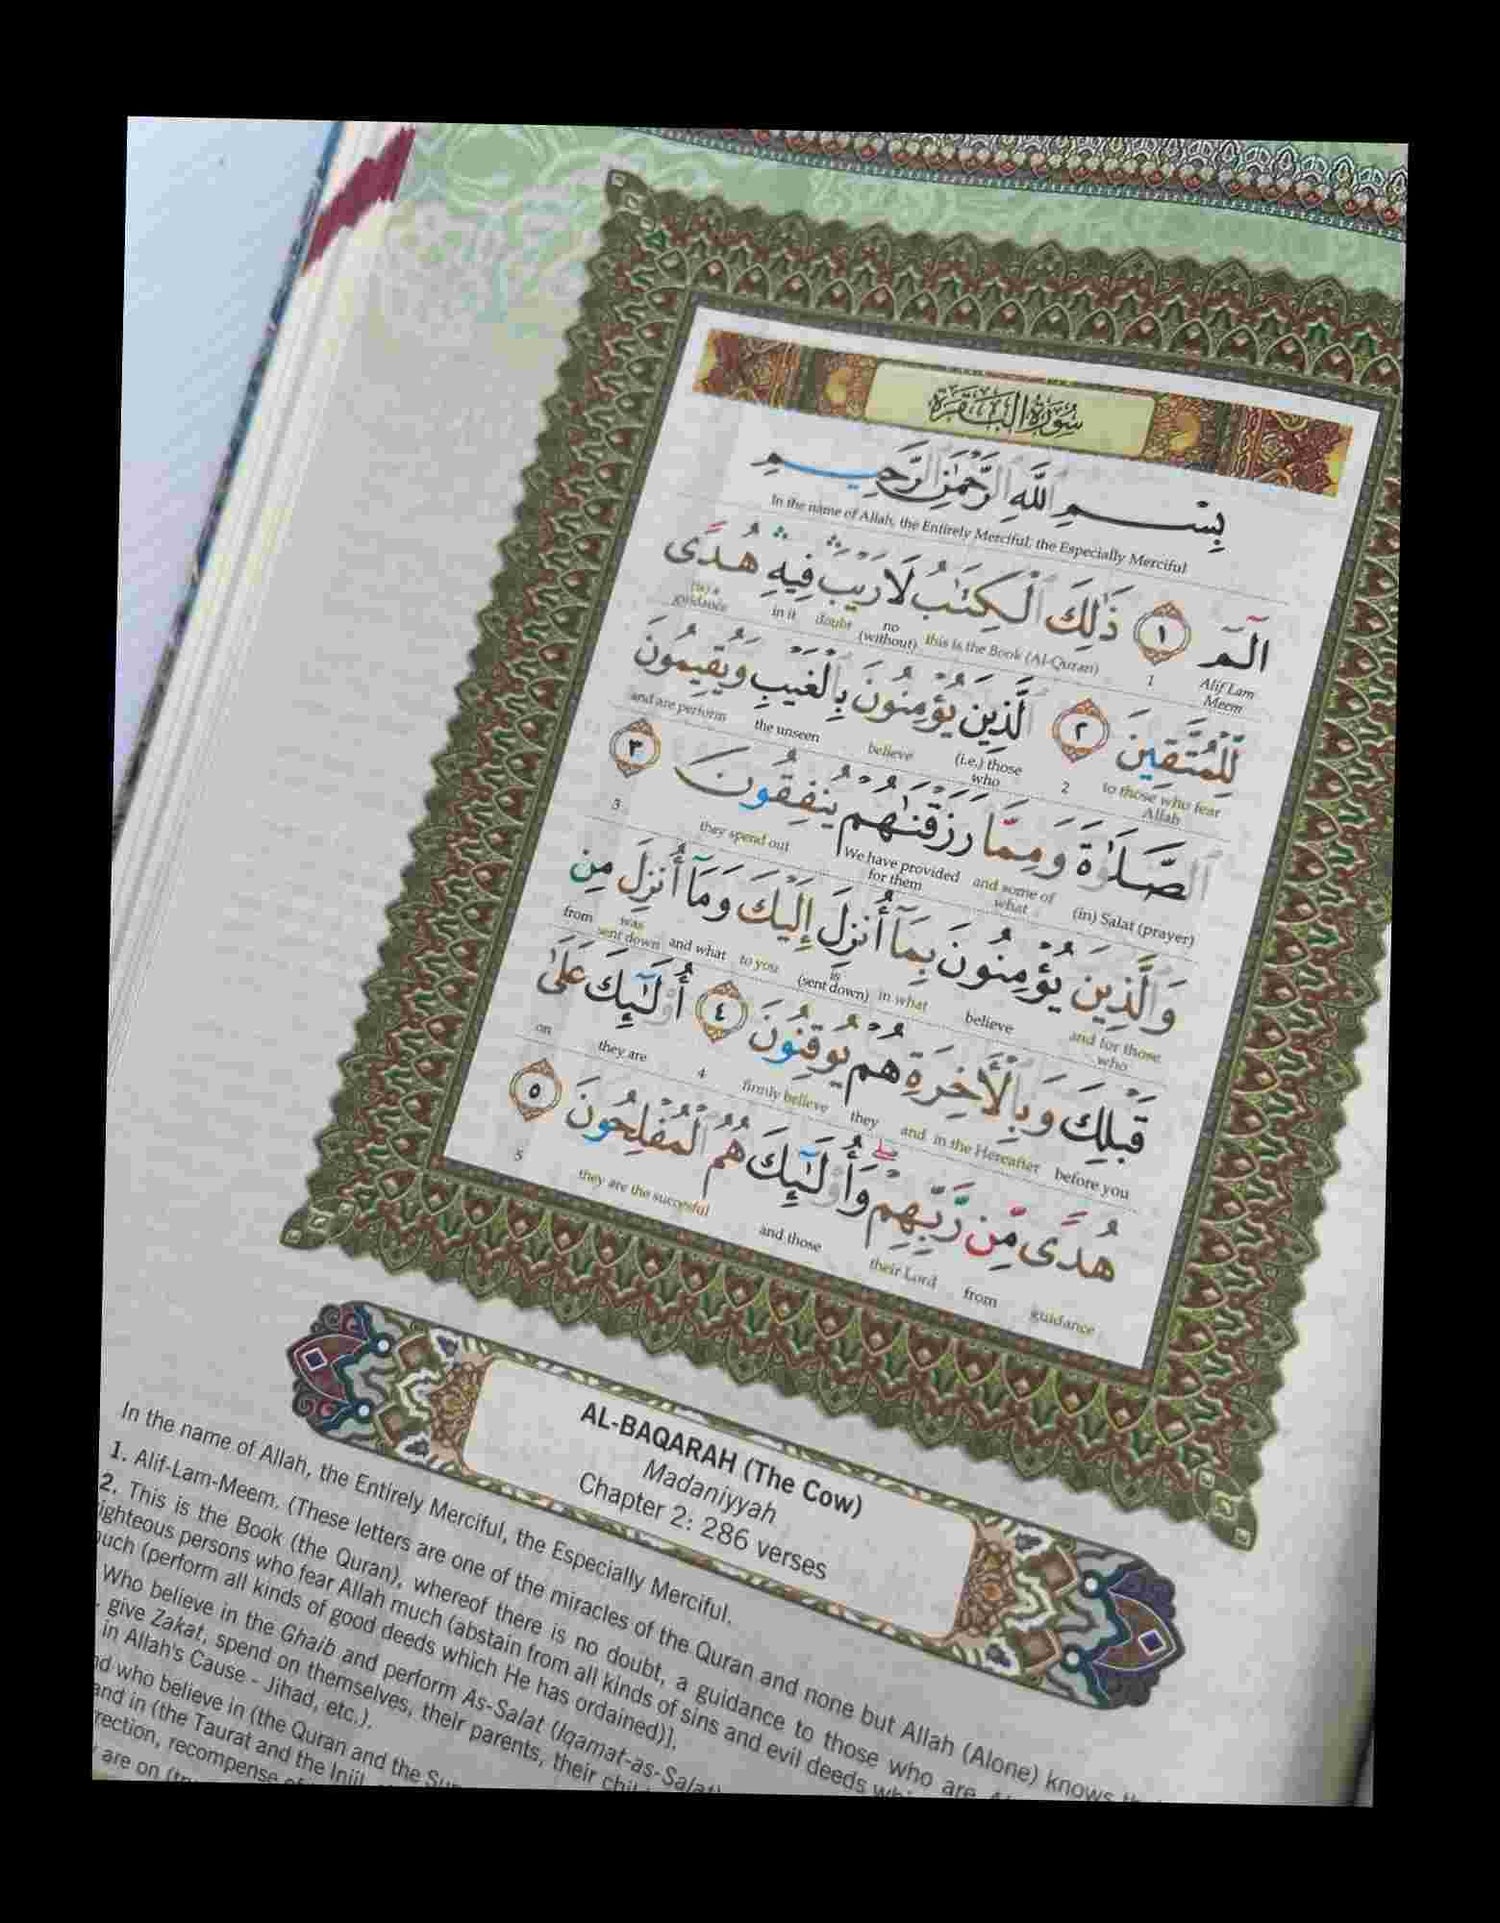 سُورَةُ الْبَقَرَةِ
بِسْمِ اللَّهِ الرَّحْمَٰنِ الرَّحِيمِ
In the name of Allah, the Entirely Merciful, the Especially Merciful
الٓمٓ ١ ذَٰلِكَ الْكِتَٰبُ لَا رَيْبَ فِيهِ هُدًى
Alif Lam Meem 1 this is the Book (Al-Quran) no (without) doubt in it (is) a guidance
لِّلْمُتَّقِينَ ٢ الَّذِينَ يُؤْمِنُونَ بِالْغَيْبِ وَيُقِيمُونَ
to those who fear Allah 2 (i.e.) those who believe the unseen and are perform
الصَّلَوٰةَ وَمِمَّا رَزَقْنَٰهُمْ يُنفِقُونَ ٣
(in) Salat (prayer) and some of what We have provided for them they spend out 3
وَالَّذِينَ يُؤْمِنُونَ بِمَآ أُنزِلَ إِلَيْكَ وَمَآ أُنزِلَ مِن
and for those who believe in what is (sent down) to you and what was sent down from
قَبْلِكَ وَبِالْأَخِرَةِ هُمْ يُوقِنُونَ ٤ أُو۟لَٰٓئِكَ عَلَىٰ
before you and in the Hereafter they firmly believe 4 they are on
هُدًى مِّن رَّبِّهِمْ ۖ وَأُو۟لَٰٓئِكَ هُمُ الْمُفْلِحُونَ ٥
guidance from their Lord and those they are the succesful 5
AL-BAQARAH (The Cow)
Madaniyyah
Chapter 2: 286 verses
In the name of Allah, the Entirely Merciful, the Especially Merciful.
1. Alif-Lam-Meem. (These letters are one of the miracles of the Quran and none but Allah (Alone) knows
2. This is the Book (the Quran), whereof there is no doubt, a guidance to those who are
righteous persons who fear Allah much (abstain from all kinds of sins and evil deeds
much (perform all kinds of good deeds which He has ordained)].
Who believe in the Ghaib and perform As-Salat (Iqamat-as-Salat)
give Zakat, spend on themselves, their parents, their
in Allah's Cause - Jihad, etc.).
who believe in (the Quran and the
and in (the Taurat and the Injil
recompense
are on